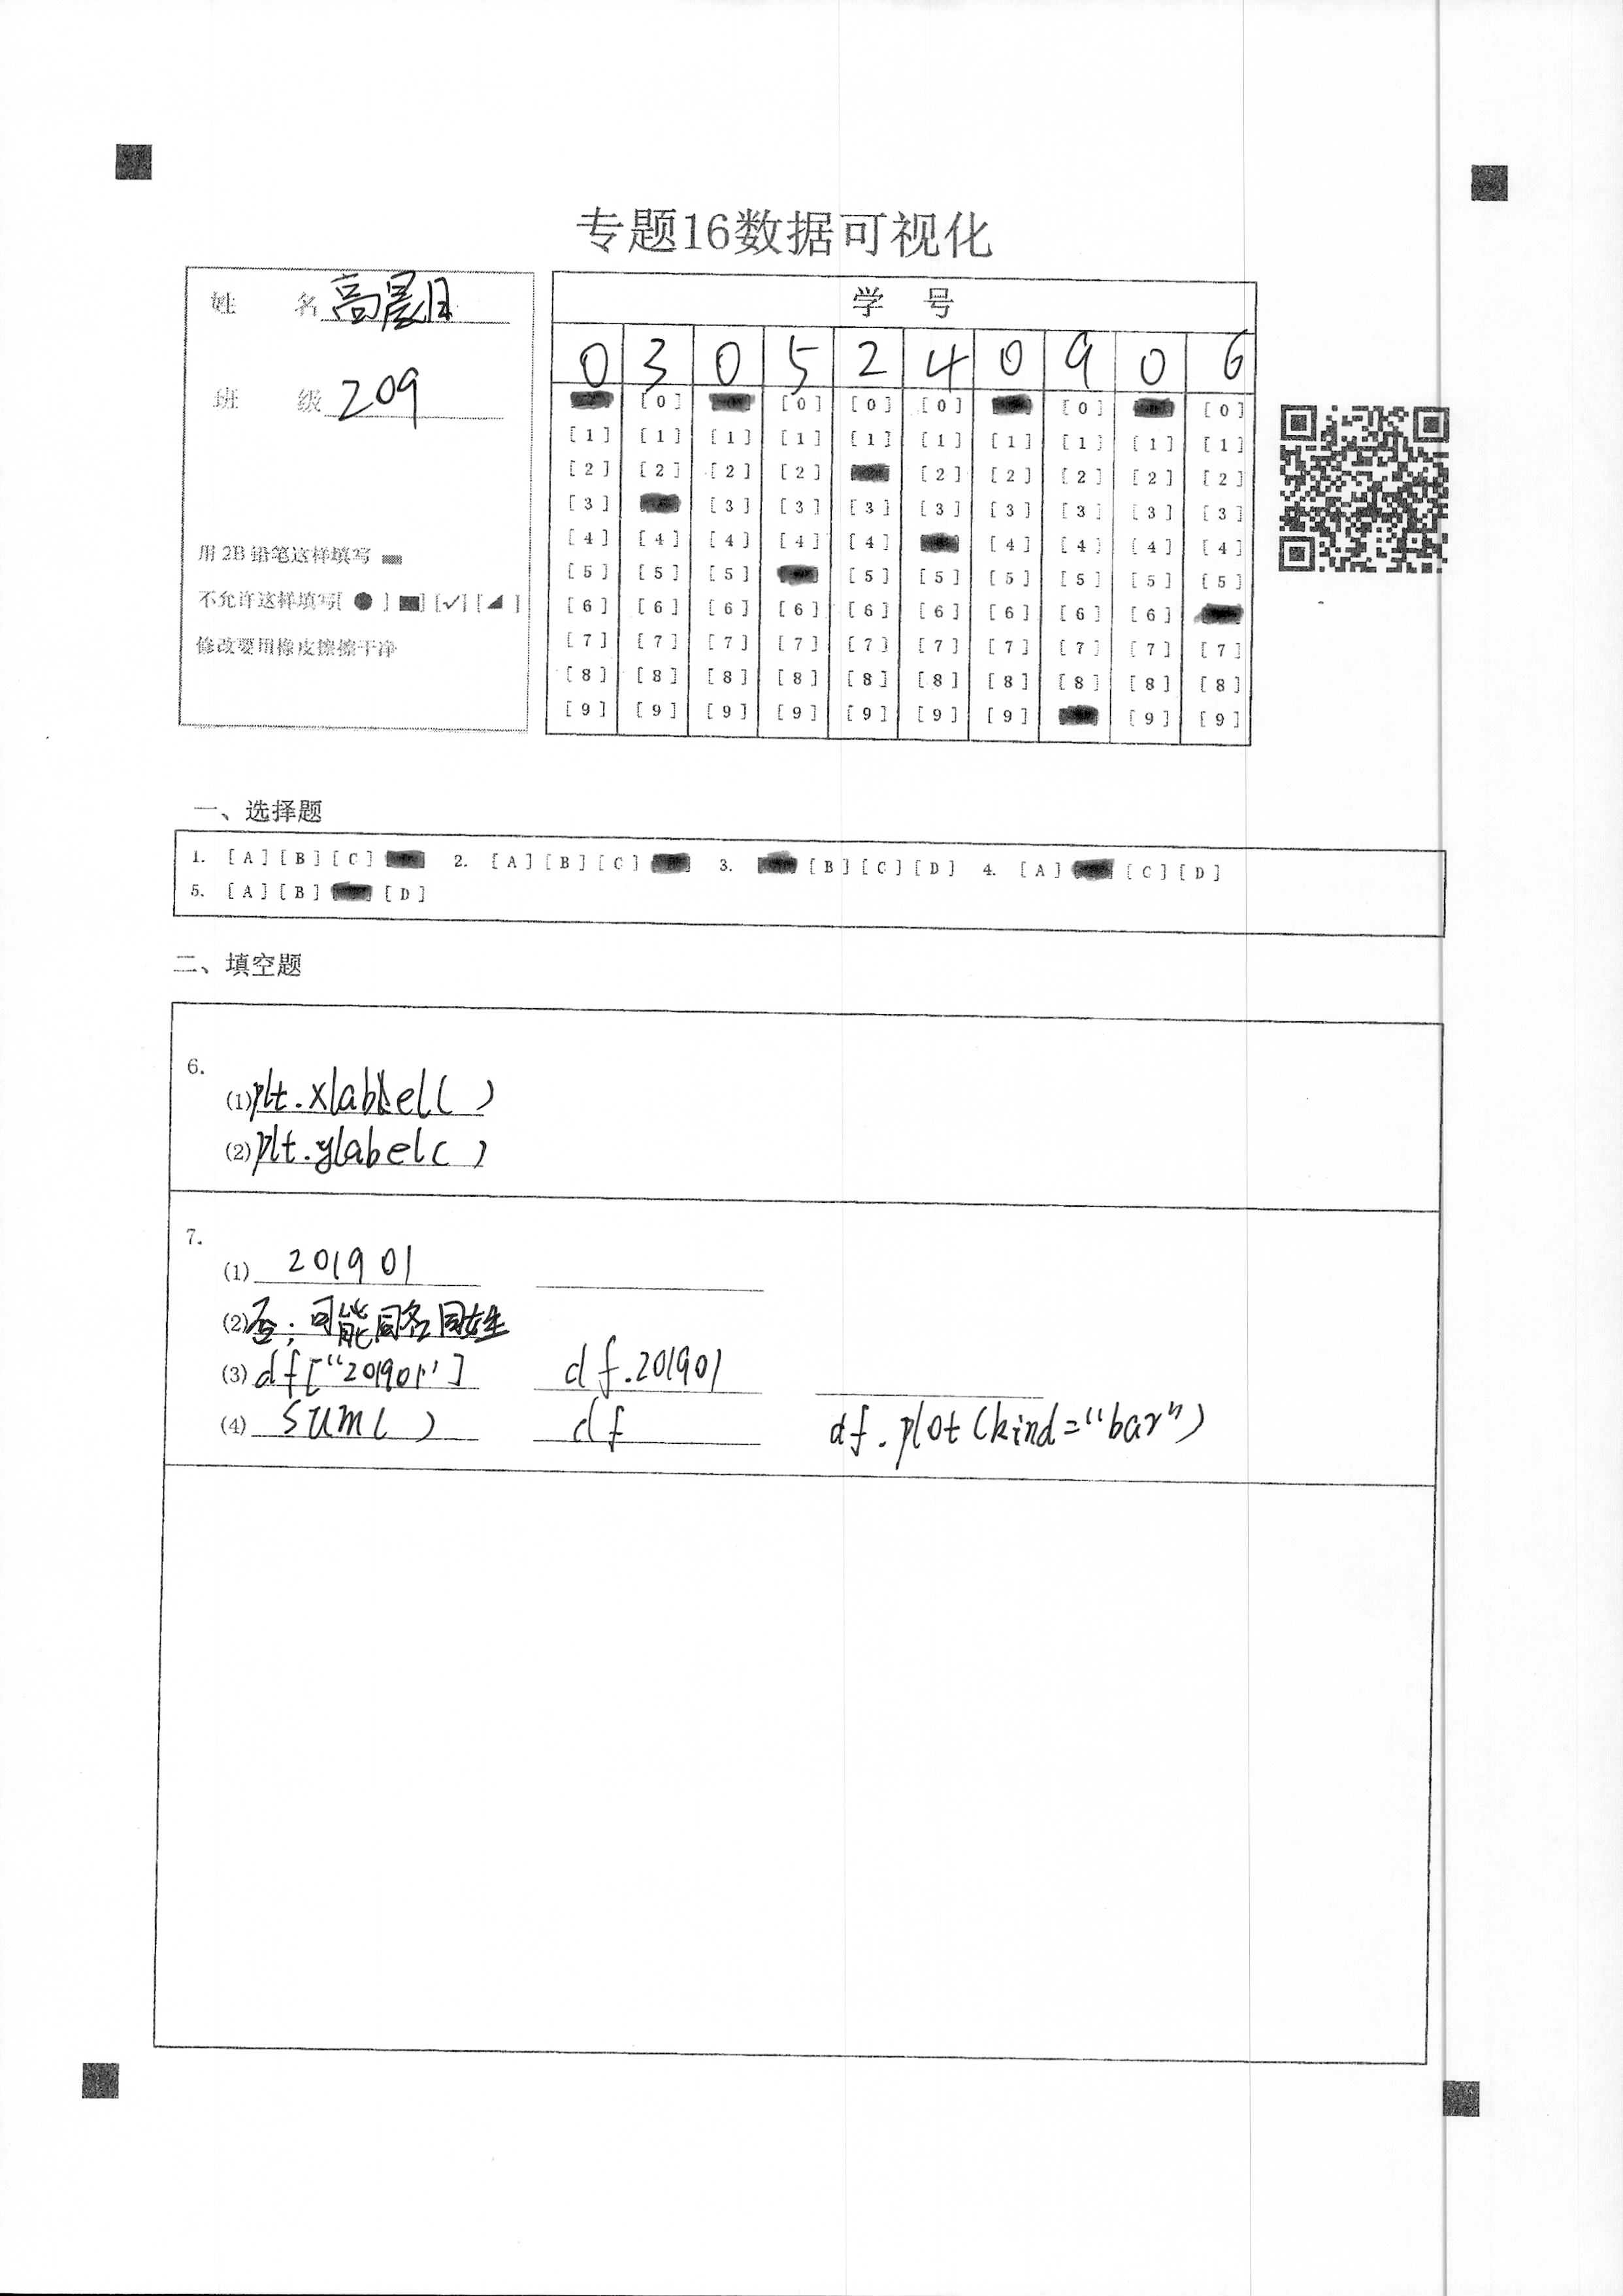 专题16数据可视化
姓 名 高晨月
班 级 209
用 2B 铅笔这样填写
不允许这样填写[ ● ] [■] [✓] [◢]
修改要用橡皮擦擦干净
学 号
0 3 0 5 2 4 0 9 0 6
[0] [0] [0] [0] [0] [0]
[1] [1] [1] [1] [1] [1] [1] [1] [1] [1]
[2] [2] [2] [2] [2] [2] [2] [2] [2]
[3] [3] [3] [3] [3] [3] [3] [3] [3]
[4] [4] [4] [4] [4] [4] [4] [4] [4]
[5] [5] [5] [5] [5] [5] [5] [5] [5]
[6] [6] [6] [6] [6] [6] [6] [6] [6]
[7] [7] [7] [7] [7] [7] [7] [7] [7] [7]
[8] [8] [8] [8] [8] [8] [8] [8] [8] [8]
[9] [9] [9] [9] [9] [9] [9] [9] [9]
一、选择题
1. [A] [B] [C] 2. [A] [B] [C] 3. [B] [C] [D] 4. [A] [C] [D]
5. [A] [B] [D]
二、填空题
6.
(1) plt.xlabel( )
(2) plt.ylabel( )
7.
(1) 201901
(2) 否；可能同名同姓
(3) df["201901"] df.201901
(4) sum( ) df df.plot(kind="bar")